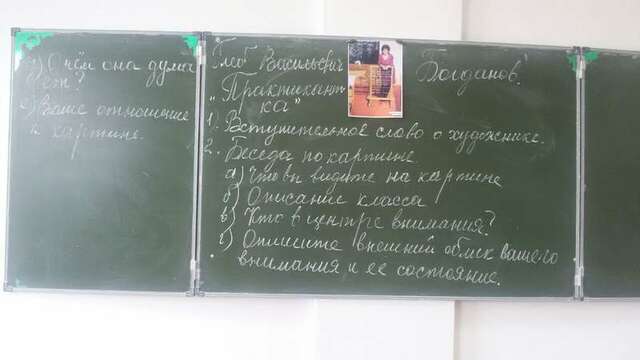 д) О чём она дума
ет?
е) Ваше отношение
к картине.
Глеб Васильевич Богданов.
„Практикант
ка"
1. Вступительное слово о художнике.
2. Беседа по картине
а) Что вы видите на картине
б) Описание класса
в) Кто в центре внимания?
г) Опишите внешний облик вашего
внимания и ее состояние.